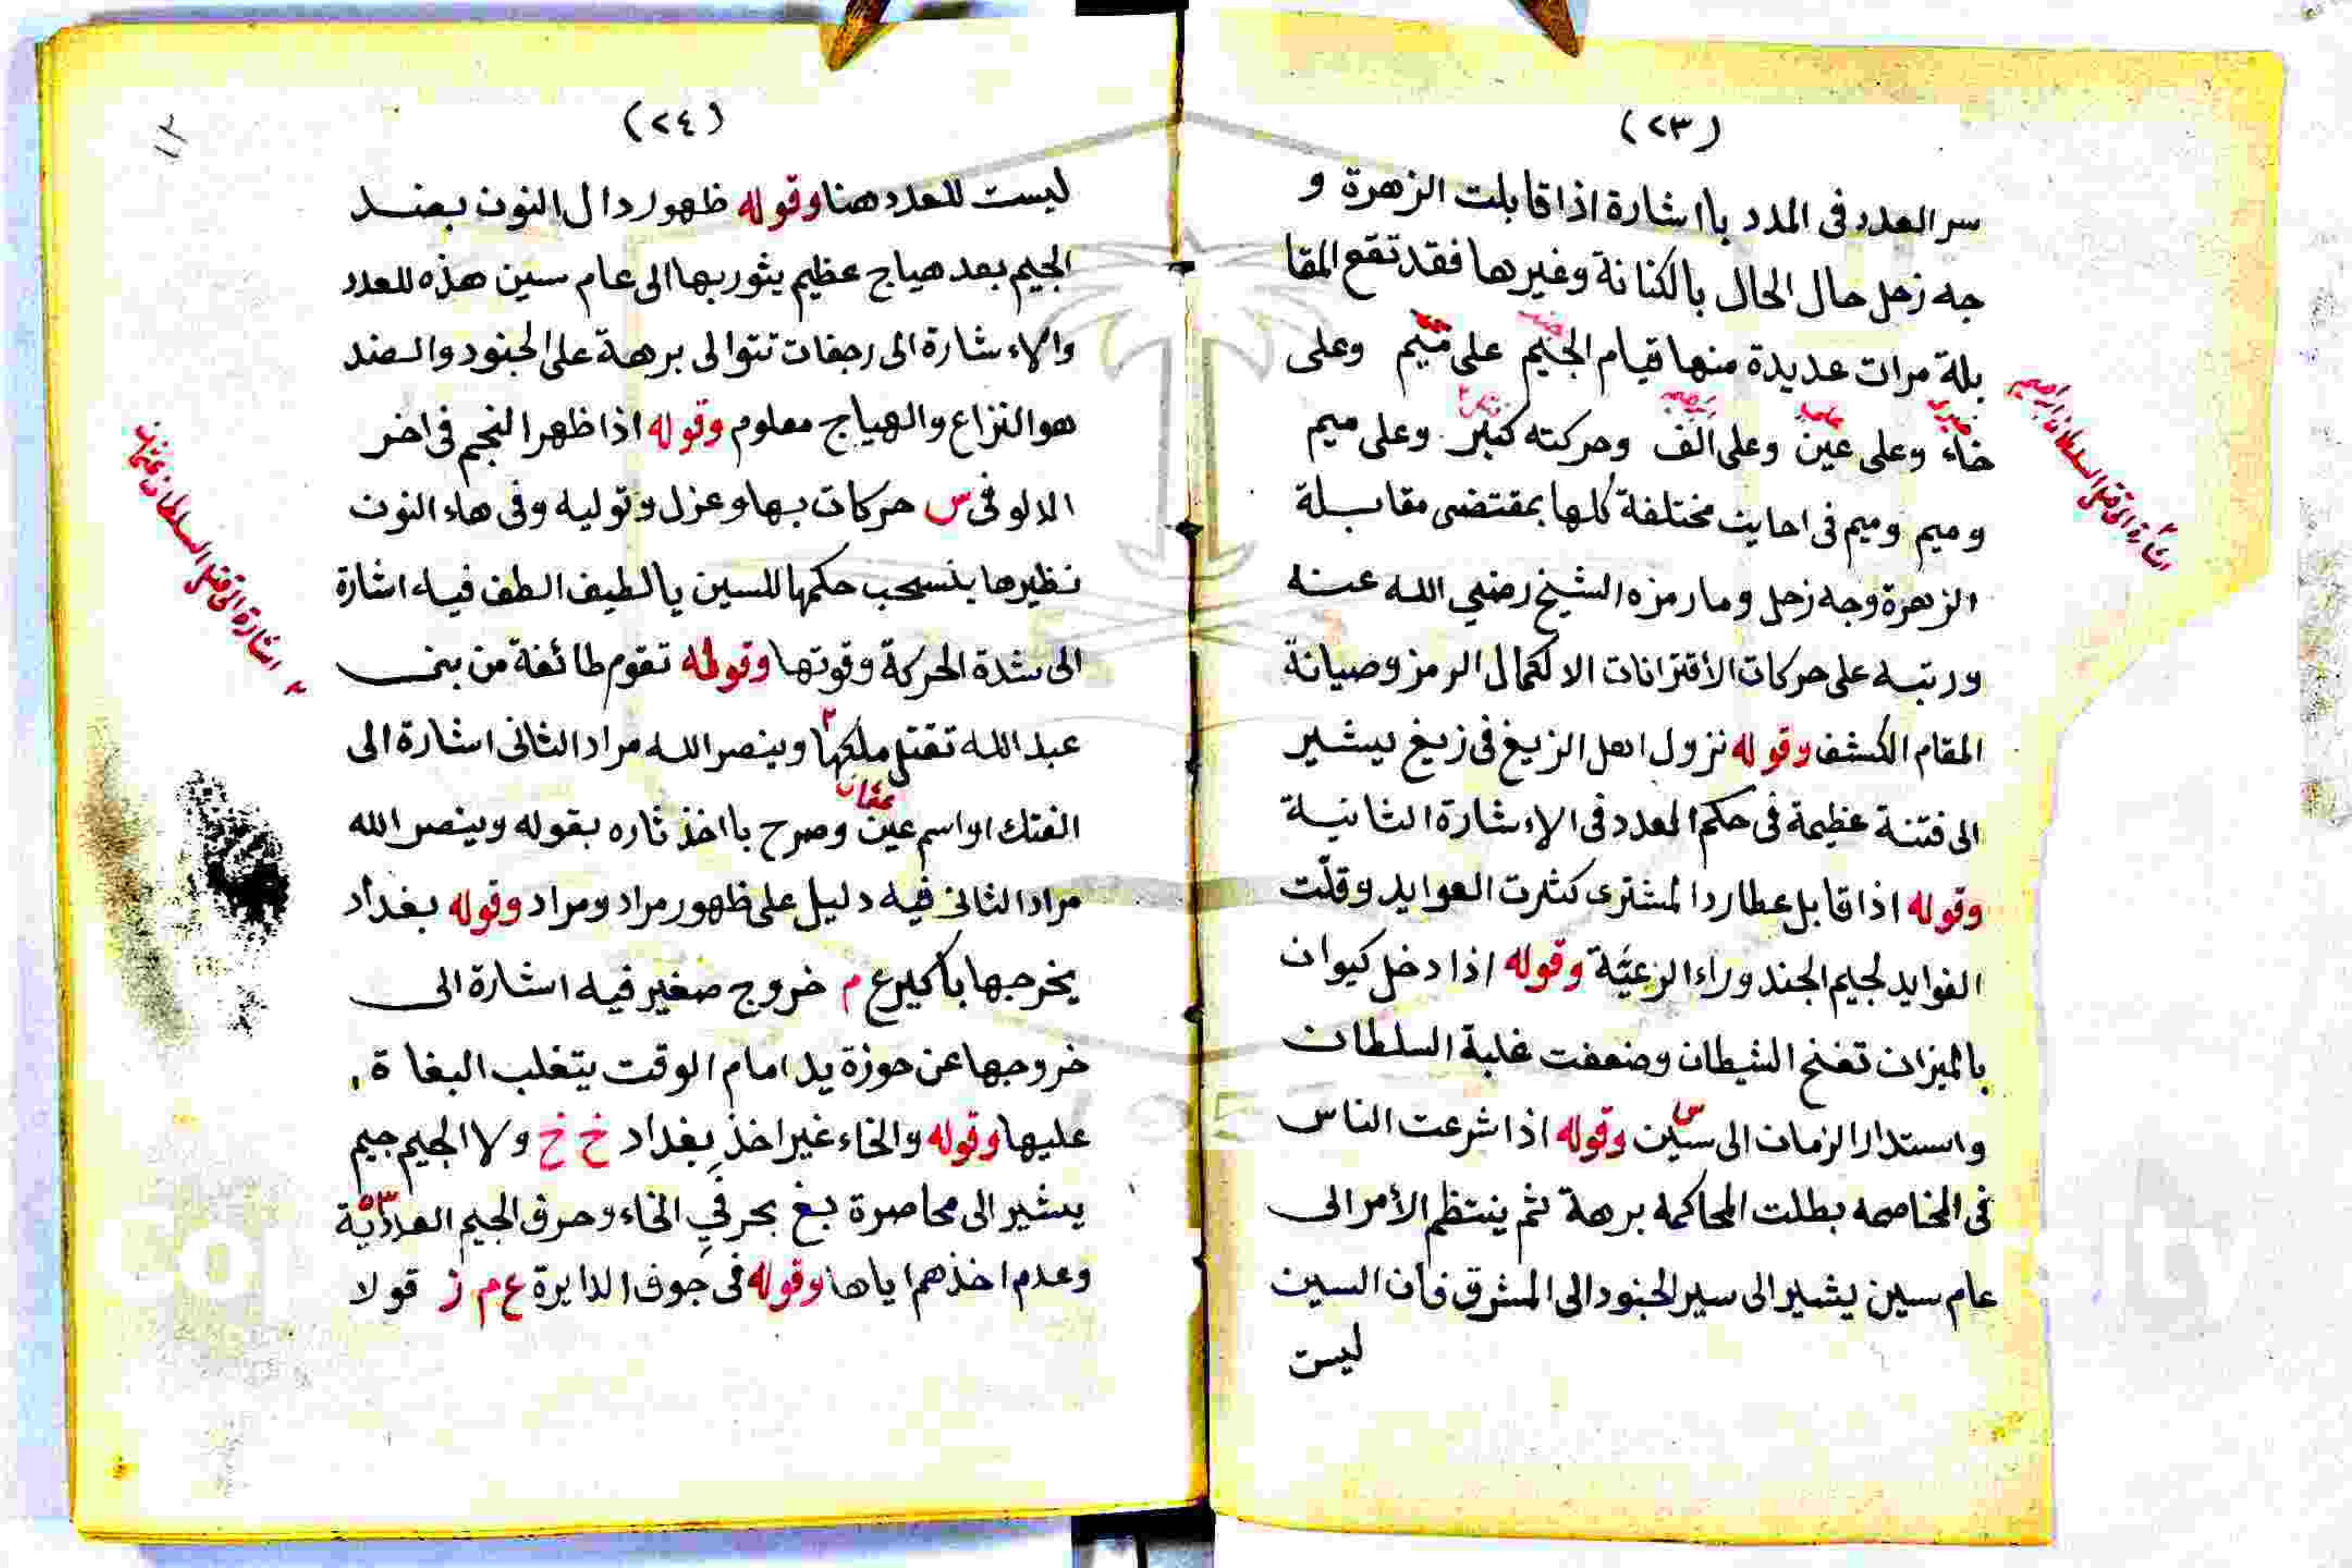 (٢٣)
سر العدد فى المدد بااشارة اذا قابلت الزهرة و
جه زحل حال الحال بالكنانة وغيرها فقد تقع المقا
بلة مرات عديدة منها قيام الجيم على ميم وعلى
خاء وعلى عين وعلى الف وحركته كبير وعلى ميم
وميم وميم فى احايث مختلفة كلها بمقتضى مقابلة
الزهرة وجه زحل وما رمزه الشيخ رضي الله عنه
ورتبه على حركات الأقترانات الا لكمال الرمز وصيانة
المقام الكشف وقوله نزول اهل الزيغ فى زيغ يشير
الى فتنة عظيمة فى حكم العدد فى الإشارة الثانية
وقوله اذا قابل عطارد المشترى كثرت العوايد وقلّت
الفوايد لجيم الجند وراء الرعيّة وقوله اذا دخل كيوان
بالميزان تفنح الشيطان وضعفت غلبة السلطان
واستدار الزمان الى سين وقوله اذا شرعت الناس
فى المخاصمه بطلت المحاكمه برهة ثم ينتظم الأمر الى
عام سين يشير الى سير الجنود الى المشرق فان السين
ليست
(٢٤)
ليست للعدد هنا وقوله ظهور دال النون بضد
الجيم بعد هياج عظيم يثور بها الى عام سين هذه للعدد
والاءشارة الى رجفات تتوالى برهة على الجنود والضد
هو النزاع والهياج معلوم وقوله اذا ظهر النجم فى اخر
الدلو فى س حركات بها وعزل وتوليه وفى هاء النون
نظيرها ينسحب حكمها للسين يالطيف الطف فيه اشارة
الى شدة الحركة وقوتها وقوله تقوم طائفة من بنى
عبد الله تقتل ملكها وينصر الله مراد الثانى اشارة الى
عثمان
الفتك او اسم عين وصرح بااخذ ثاره بقوله وينصر الله
مراد الثانى فيه دليل على ظهور مراد ومراد وقوله بغداد
يخرجها باكير ع م خروج صغير فيه اشارة الى
خروجها عن حوزة يد امام الوقت يتغلب البغاة
عليها وقوله والخاء غير اخذ بغداد خ خ ولا الجيم جيم
يشير الى محاصرة بغ بحرفي الخاء وحرف الجيم العدديّة
وعدم اخذهم اياها وقوله فى جوف الدايرة ع م ز قولا
اشارة الى قتل السلطان عثمان